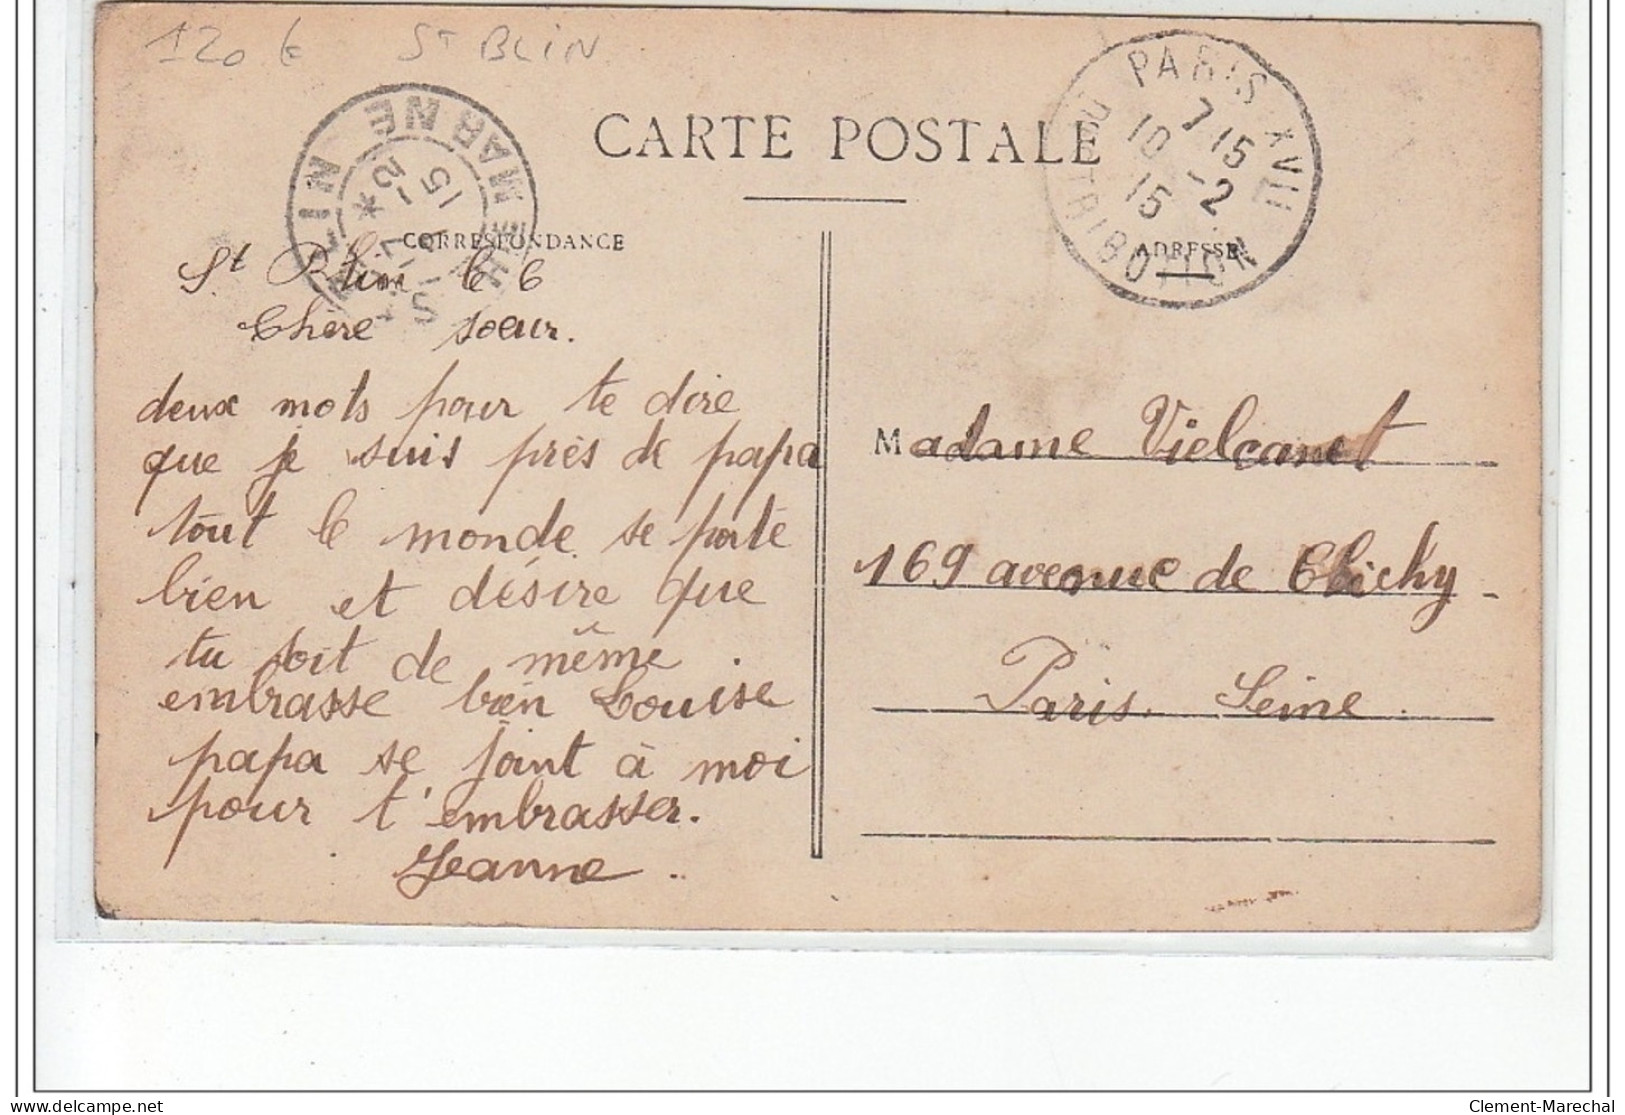 120 € ST BLIN
CARTE POSTALE
PARIS XVII
7 15
10 -2
15
DISTRIBUTION
BLIN
HTE MARNE
7 -2
15
CORRESPONDANCE
ADRESSE
St Blin le 6
Chère soeur.
deux mots pour te dire
que je suis près de papa
tout le monde se porte
bien et désire que
tu soit de même.
embrasse bien Louise
papa se joint à moi
pour t'embrasser.
Jeanne
Madame Vielcanet
169 avenue de Clichy -
Paris. Seine.
Clement-Marechal